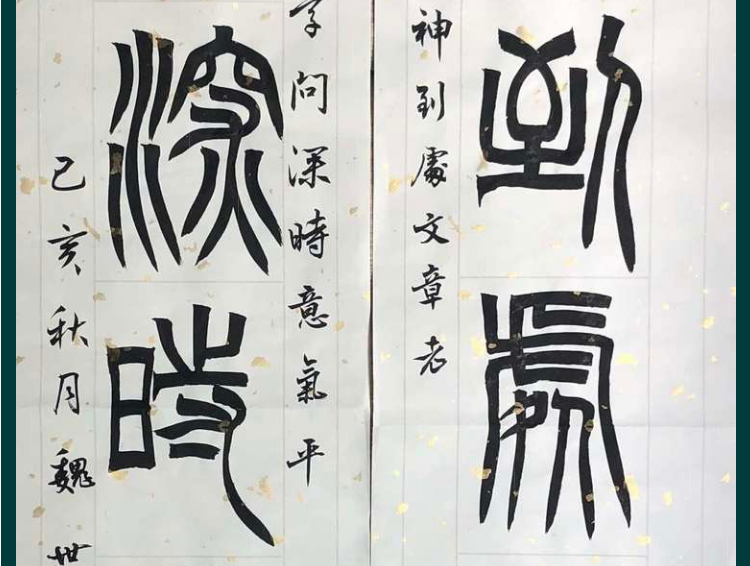 到處
神到處文章老
深時
字問深時意氣平
己亥秋月魏世